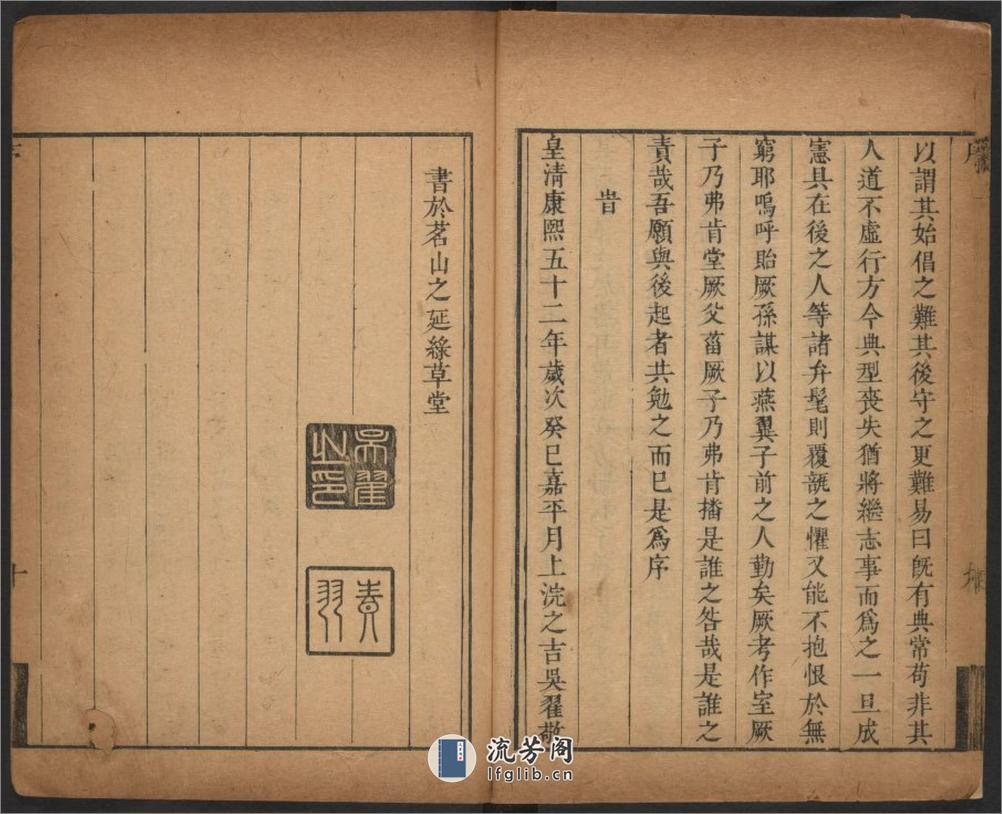 以謂其始倡之難其後守之更難易曰旣有典常苟非其
人道不虛行方今典型喪失猶將繼志事而爲之一旦成
憲具在後之人等諸弁髦則覆瓿之懼又能不抱恨於無
窮耶嗚呼貽厥孫謀以燕翼子前之人勤矣厥考作室厥
子乃弗肯堂厥父菑厥子乃弗肯播是誰之咎哉是誰之
責哉吾願與後起者共勉之而已是爲序
旹
皇清康熙五十二年歲次癸巳嘉平月上浣之吉吳翟敬
書於茗山之延綠草堂
吳翟之印
素羽
序
十
流芳阁
lfglib.cn